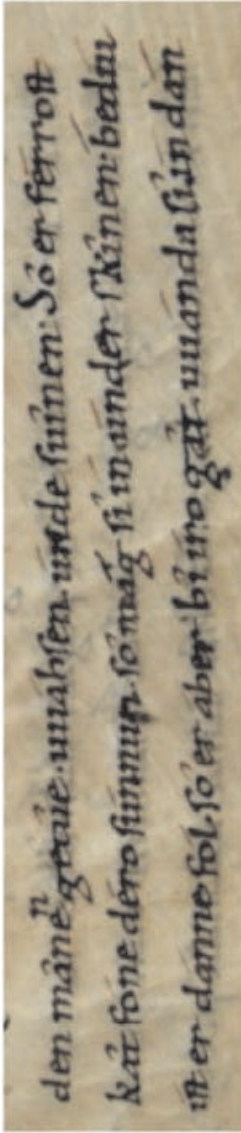 den mânen getûe. uuáhsen. únde suuínen. Sô er férrost
kât fóne déro súnnun. sô mág sî ín únder skînen. bedíu
íst er dánne fól. sô er aber bî íro gât. uuánda sî ín dán